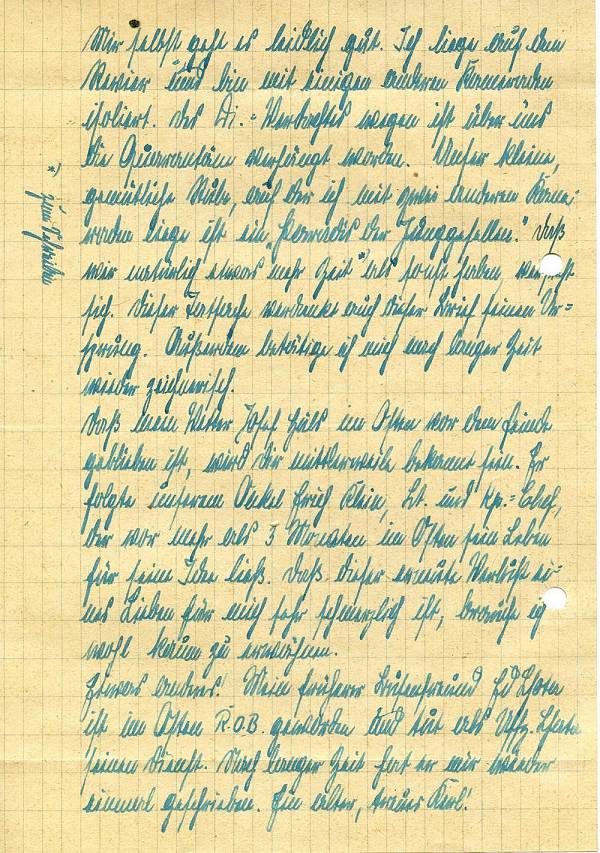 Mir selbst geht es leidlich gut. Ich liege auf dem
Revier und bin mit einigen anderen Kameraden
isoliert. Des Di.-Verdachtes wegen ist über uns
die Quarantäne verhängt worden. Unser kleine,
gemütliche Stube, auf der ich mit zwei anderen Kame-
raden liege ist ein "Paradis der Junggesellen." Daß
wir natürlich etwas mehr Zeit *) als sonst haben, versteht
sich. Dieser Tatsache verdankt auch dieser Brief seinen Ur-
sprung. Außerdem betätige ich mich nach langer Zeit
wieder zeichnerisch.
Daß mein Vetter Josef Hüls im Osten vor dem Feinde
geblieben ist, wird dir mittlerweile bekannt sein. Er
folgte unserem Onkel Erich Klein, Lt. und Kp.-Chef,
der vor mehr als 3 Monaten im Osten sein Leben
für seine Idee ließ. Daß dieser erneute Verlust ei-
nes Lieben für mich sehr schmerzlich ist, brauche ich
wohl kaum zu erwähnen.
Etwas anderes! Mein früherer Budenfreund Ed
ist im Osten R.O.B. geworden und tut als Uffz.
seinen Dienst. Nach langer Zeit hat er mir wieder
einmal geschrieben. Ein alter, treuer Kerl!
*) zum Schreiben